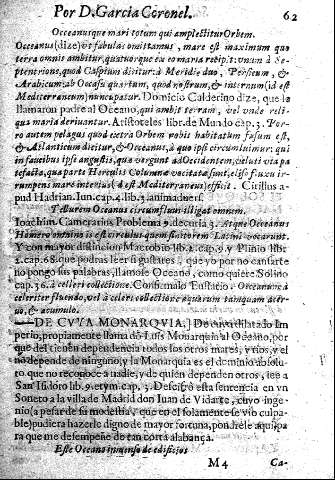 Por D. Garcia Coronel. 62
Occeanusque mari totum qui amplectitur Orbem.
Oceanus (dize) vt fabulas omittamus, mare est maximum quo
terra omnis ambitur, quatuorque ex eo maria recipit: vnum à Se-
ptentrione, quod Caspium dicitur: à Meridie duo, Persicum, &
Arabicum: ab Occasu quartum, quod nostrum, & internum (id est
Mediterraneum) nuncupatur. Domicio Calderino dize, que le
llamaron padre al Oceano, qui ambit terram, vel vnde reli-
qua maria deriuantur. Aristoteles libr. de Mundo cap. 3. Por-
ro autem pelagus quod extra Orbem nobis habitatum fusum est,
& Atlanticum dicitur, & Oceanus, à quo ipsi circumluimur: qui
in faucibus ipse angustis, qua vergunt ad Occidentem, veluti via pa
tefacta, qua parte Herculis Columnæ vocitatæ sunt, eliso fluxu ir-
rumpens mare interius (id est Mediterraneum) efficit. Citillus a-
pud Hadrian. Iun. cap. 4. lib. 3. animaduers.
Tellurem Oceanus circumfluus illigat omnem.
Ioachim. Camerarius Problema 9. decuria 3. Atque Oceanus
Homero omnino is est circulus, quem finitorem Latini vocarunt.
Y con mayor distincion Macrobio lib. 2. cap. 9. y Plinio libr.
2. cap. 68. que podras leer si gustares, que yo por no cansarte
no pongo sus palabras, llamose Oceano, como quiere Solino
cap. 36. à celleri collectione. Confirmalo Eustatio. Oceanum à
celeriter fluendo, vel à celeri collectione aquarum tamquam acer-
uo, & acumulo.
DE CVYA MONARQVIA.] De cuyo dilatado Im
perio, propiamente llama dõ Luis Monarquia al Oceano, por
que del tienen dependencia todos los otros mares, y rios, y el
no depende de ninguno, y la Monarquia es el dominio absolu-
to que no reconoce a nadie, y de quien dependen otros, lee a
San Isidoro lib. 9. etym. cap. 3. Descifrò esta sentencia en vn
Soneto a la villa de Madrid don Iuan de Vidarte, cuyo inge-
nio (a pesar de su modestia, que en el solamente se vio culpa-
ble) pudiera hazerle digno de mayor fortuna, pondrèle aqui pa
ra que me desempeñe de tan corta alabança.
Este Oceano inmenso de edificios
M 4 Ca-